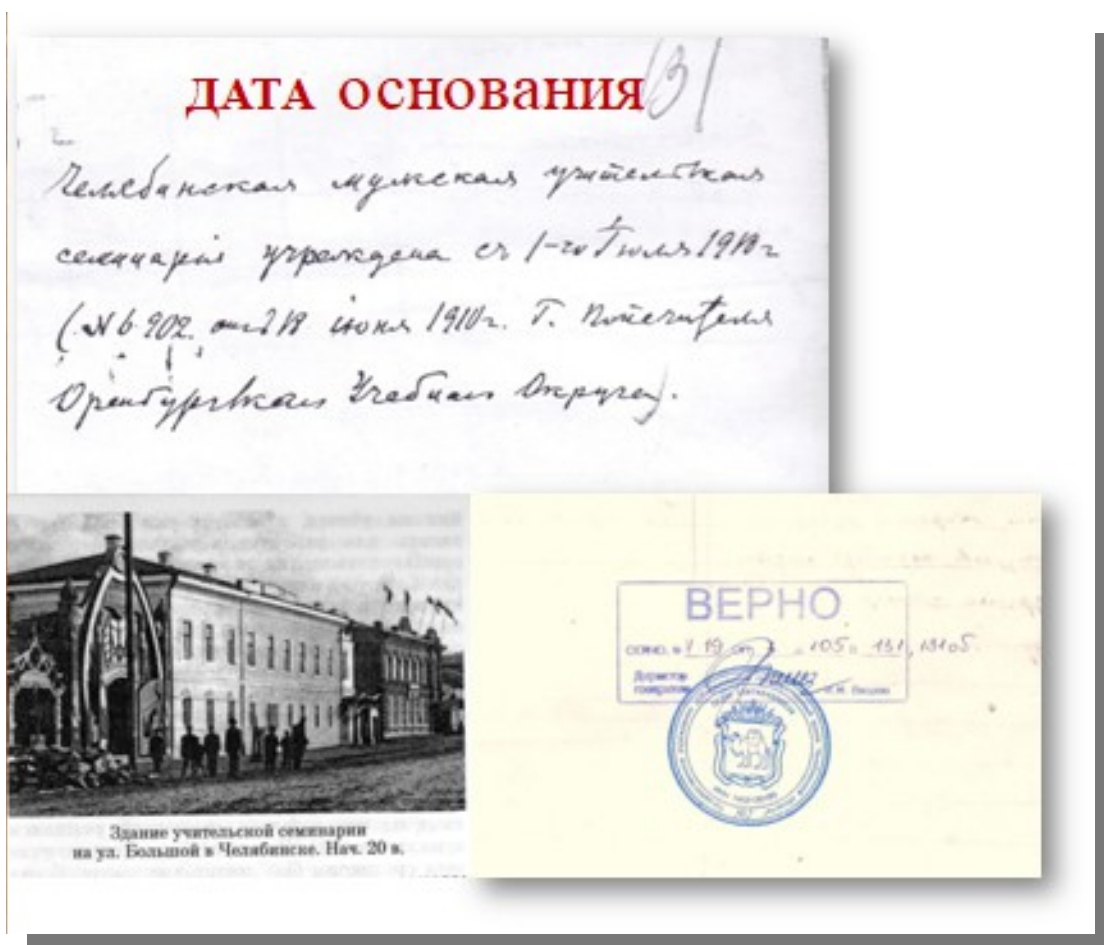 ДАТА ОСНОВАНИЯ
131
Челябинская мужская учительская
семинарія учреждена съ 1-го Іюля 1910 г
(№ 6902 отъ 18 іюня 1910 г. Г. Попечителя
Оренбургскаго Учебнаго Округа).
Здание учительской семинарии
на ул. Большой в Челябинске. Нач. 20 в.
ВЕРНО
105 131, 131 об
Директор